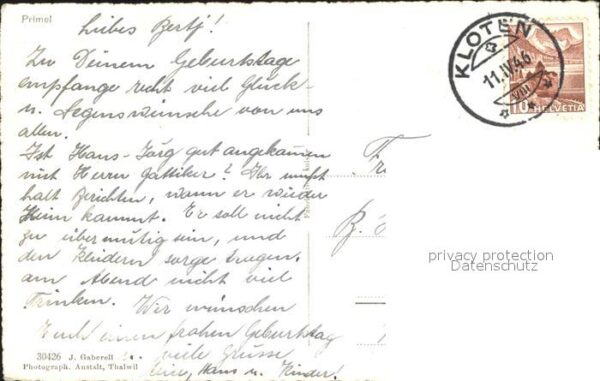 Primel
Liebes Bertj!
Zu Deinem Geburtstage
empfange recht viel Glück-
u. Segenswünsche von uns
allen.
Ist Hans-Jörg gut angekommen
mit Herrn Gattiker? Ihr müsst
halt Berichten, wann er wieder
Heim kommt. Er soll nicht
zu übermütig sein, und
den Kleidern sorge tragen.
am Abend nicht viel
Trinken. Wir wünschen
Euch einen frohen Geburtstag
viele Grüsse
Hans u. Kinder!
30426 J. Gaberell
Photograph. Anstalt, Thalwil
KLOTEN
11.IV.46
VIII
10 HELVETIA
Fr
B.
privacy protection
Datenschutz